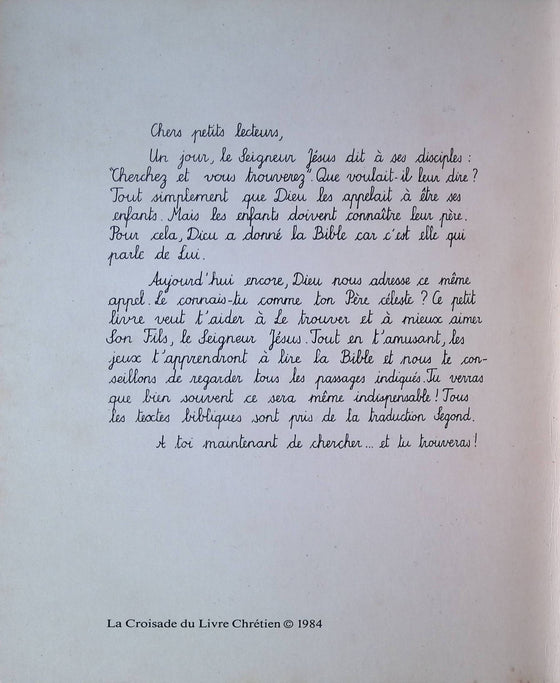 Chers petits lecteurs,
Un jour, le Seigneur Jésus dit à ses disciples :
"Cherchez et vous trouverez". Que voulait-il leur dire ?
Tout simplement que Dieu les appelait à être ses
enfants. Mais les enfants doivent connaître leur père.
Pour cela, Dieu a donné la Bible car c'est elle qui
parle de Lui.
Aujourd'hui encore, Dieu nous adresse ce même
appel. Le connais-tu comme ton Père céleste ? Ce petit
livre veut t'aider à Le trouver et à mieux aimer
Son Fils, le Seigneur Jésus. Tout en t'amusant, les
jeux t'apprendront à lire la Bible et nous te con-
seillons de regarder tous les passages indiqués. Tu verras
que bien souvent ce sera même indispensable ! Tous
les textes bibliques sont pris de la traduction Segond.
A toi maintenant de chercher... et tu trouveras !
La Croisade du Livre Chrétien © 1984